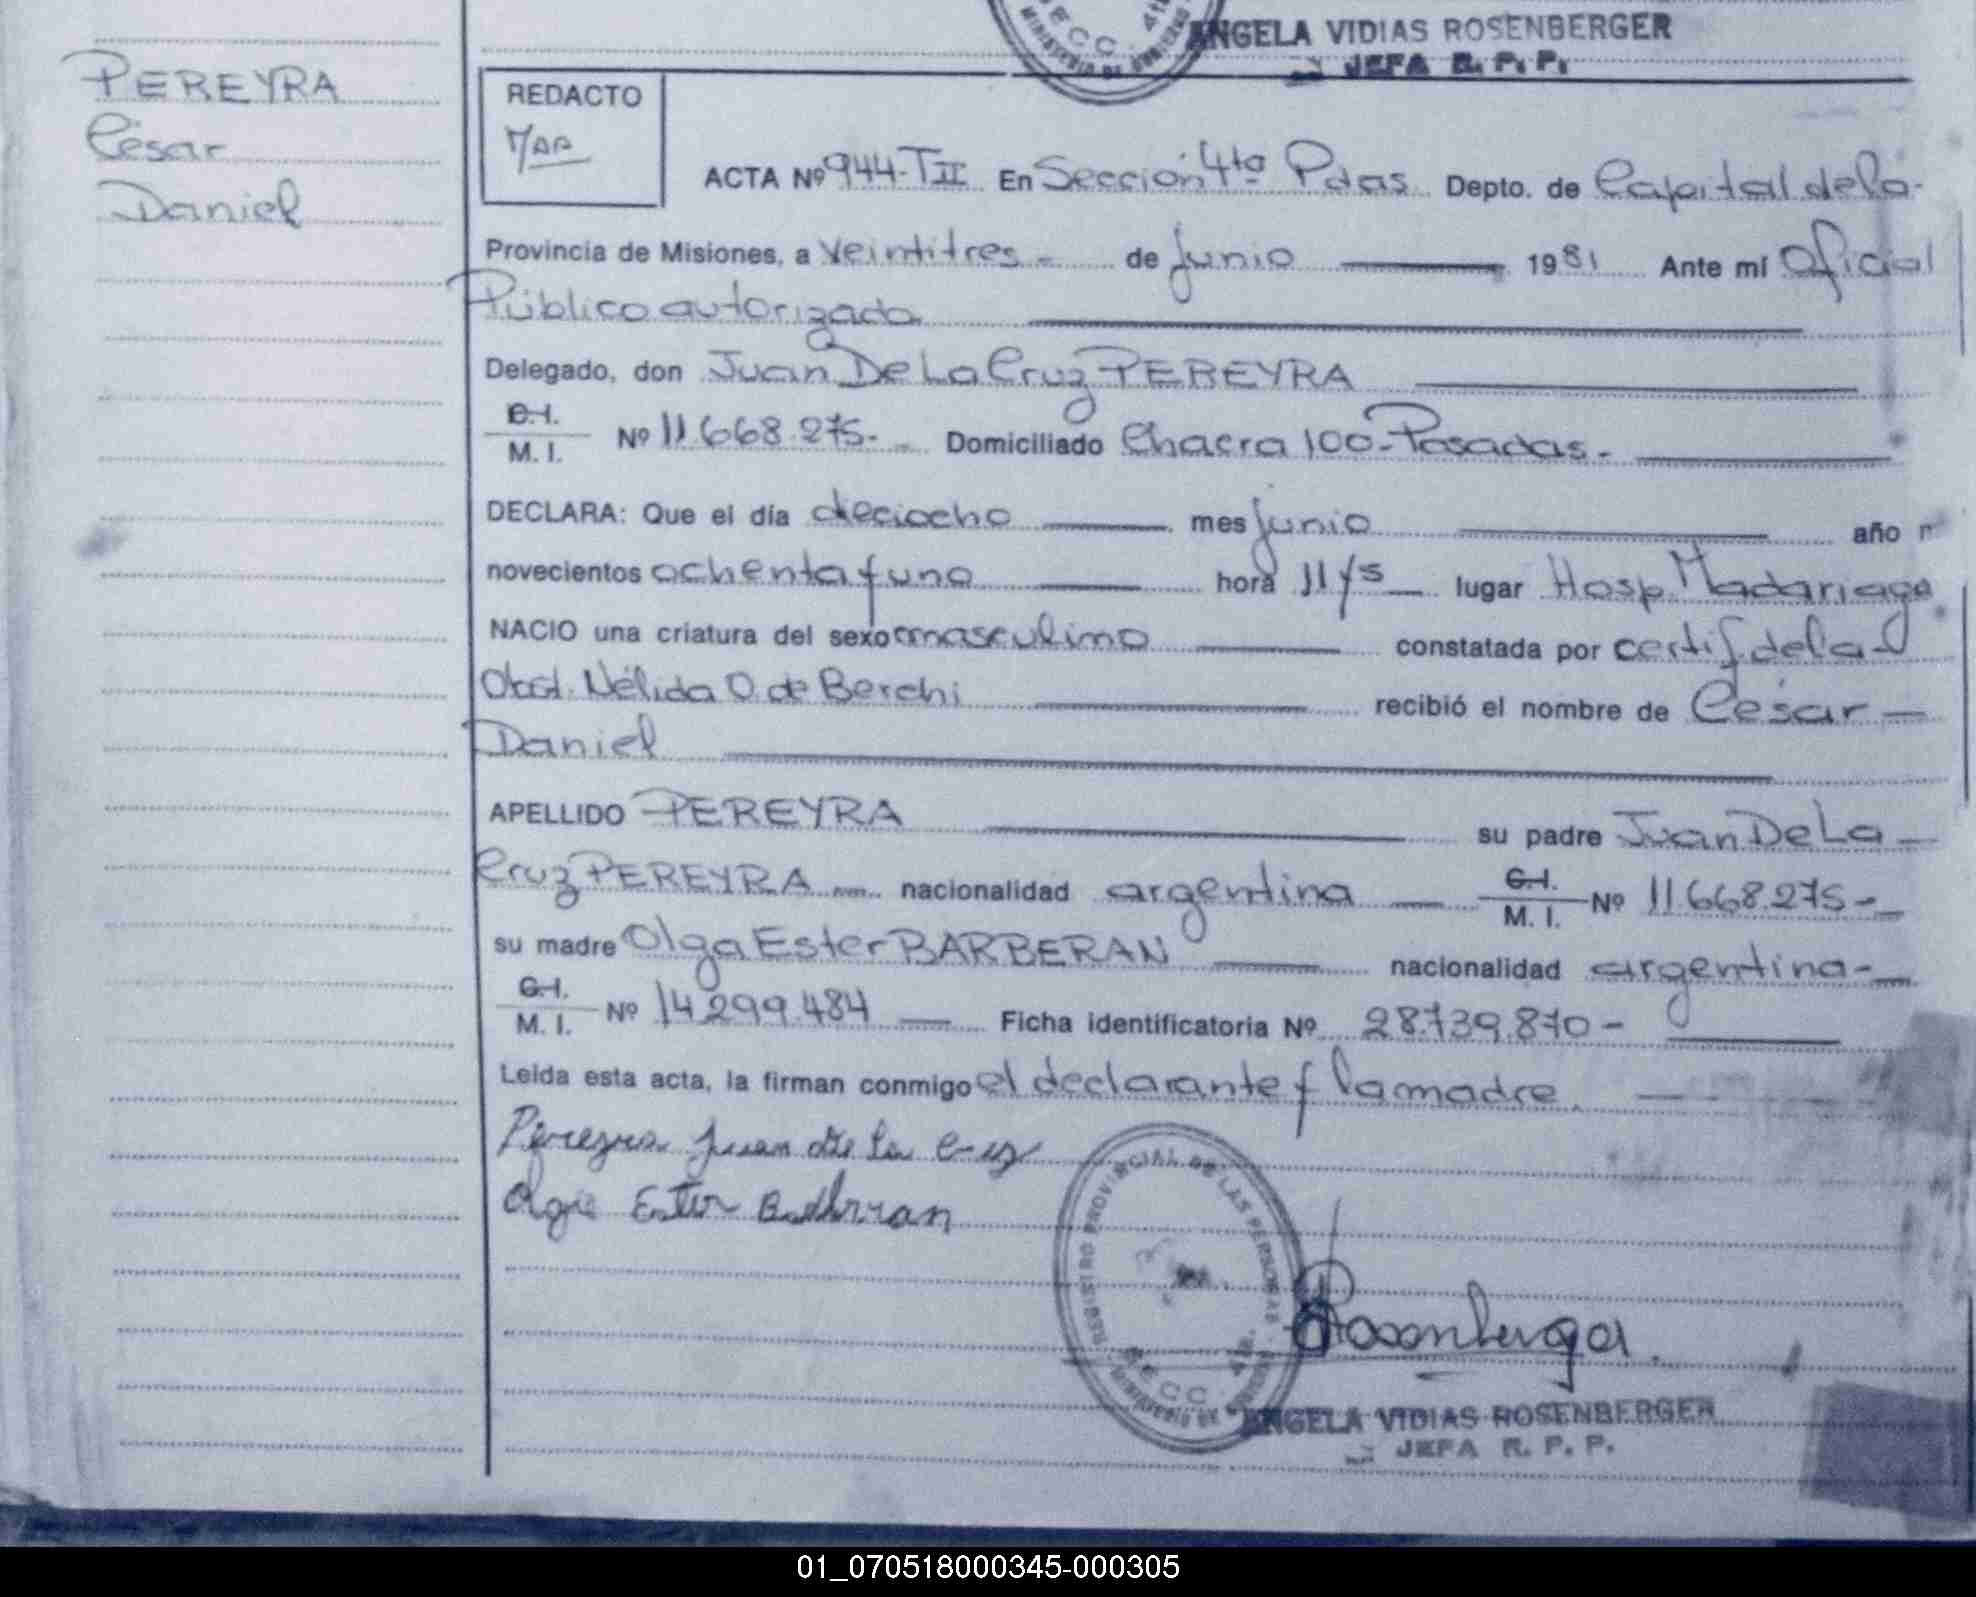 ANGELA VIDIAS ROSENBERGER
JEFA R. P. P.
PEREYRA
César
Daniel
REDACTO
ACTA Nº 944-TII En Sección 4ta Pdas. Depto. de Capital de la
Provincia de Misiones, a veintitres - de junio 1981 Ante mí Oficial
Público autorizado
Delegado, don Juan De La Cruz PEREYRA
C.I. M. I. Nº 11.668.275.- Domiciliado Chacra 100-Posadas.-
DECLARA: Que el día deciocho mes junio año
novecientos ochenta y uno hora 11 y 5 lugar Hosp. Madariaga
NACIO una criatura del sexo masculino constatada por certif. de la
Obst. Nélida O. de Berchi recibió el nombre de César
Daniel
APELLIDO PEREYRA su padre Juan De La
Cruz PEREYRA nacionalidad argentina C.I. M. I. Nº 11.668.275-
su madre Olga Ester BARBERAN nacionalidad argentina-
C.I. M. I. Nº 14.299.484 Ficha identificatoria Nº 28.739.870-
Leída esta acta, la firman conmigo el declarante y la madre.
Pereyra Juan De la Cruz
Olga Ester Barberan
REGISTRO PROVINCIAL DE LAS PERSONAS
SECC. 4ta.
MINISTERIO DE GOBIERNO
Rosenberger
ANGELA VIDIAS ROSENBERGER
JEFA R. P. P.
01_070518000345-000305